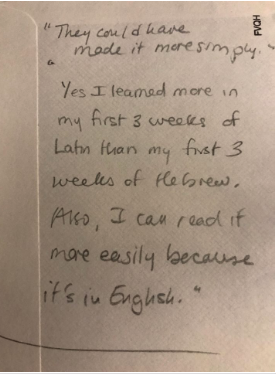 "They could have
made it more simply."
FVQH
"
Yes I learned more in
my first 3 weeks of
Latin than my first 3
weeks of Hebrew.
Also, I can read it
more easily because
it's in English."